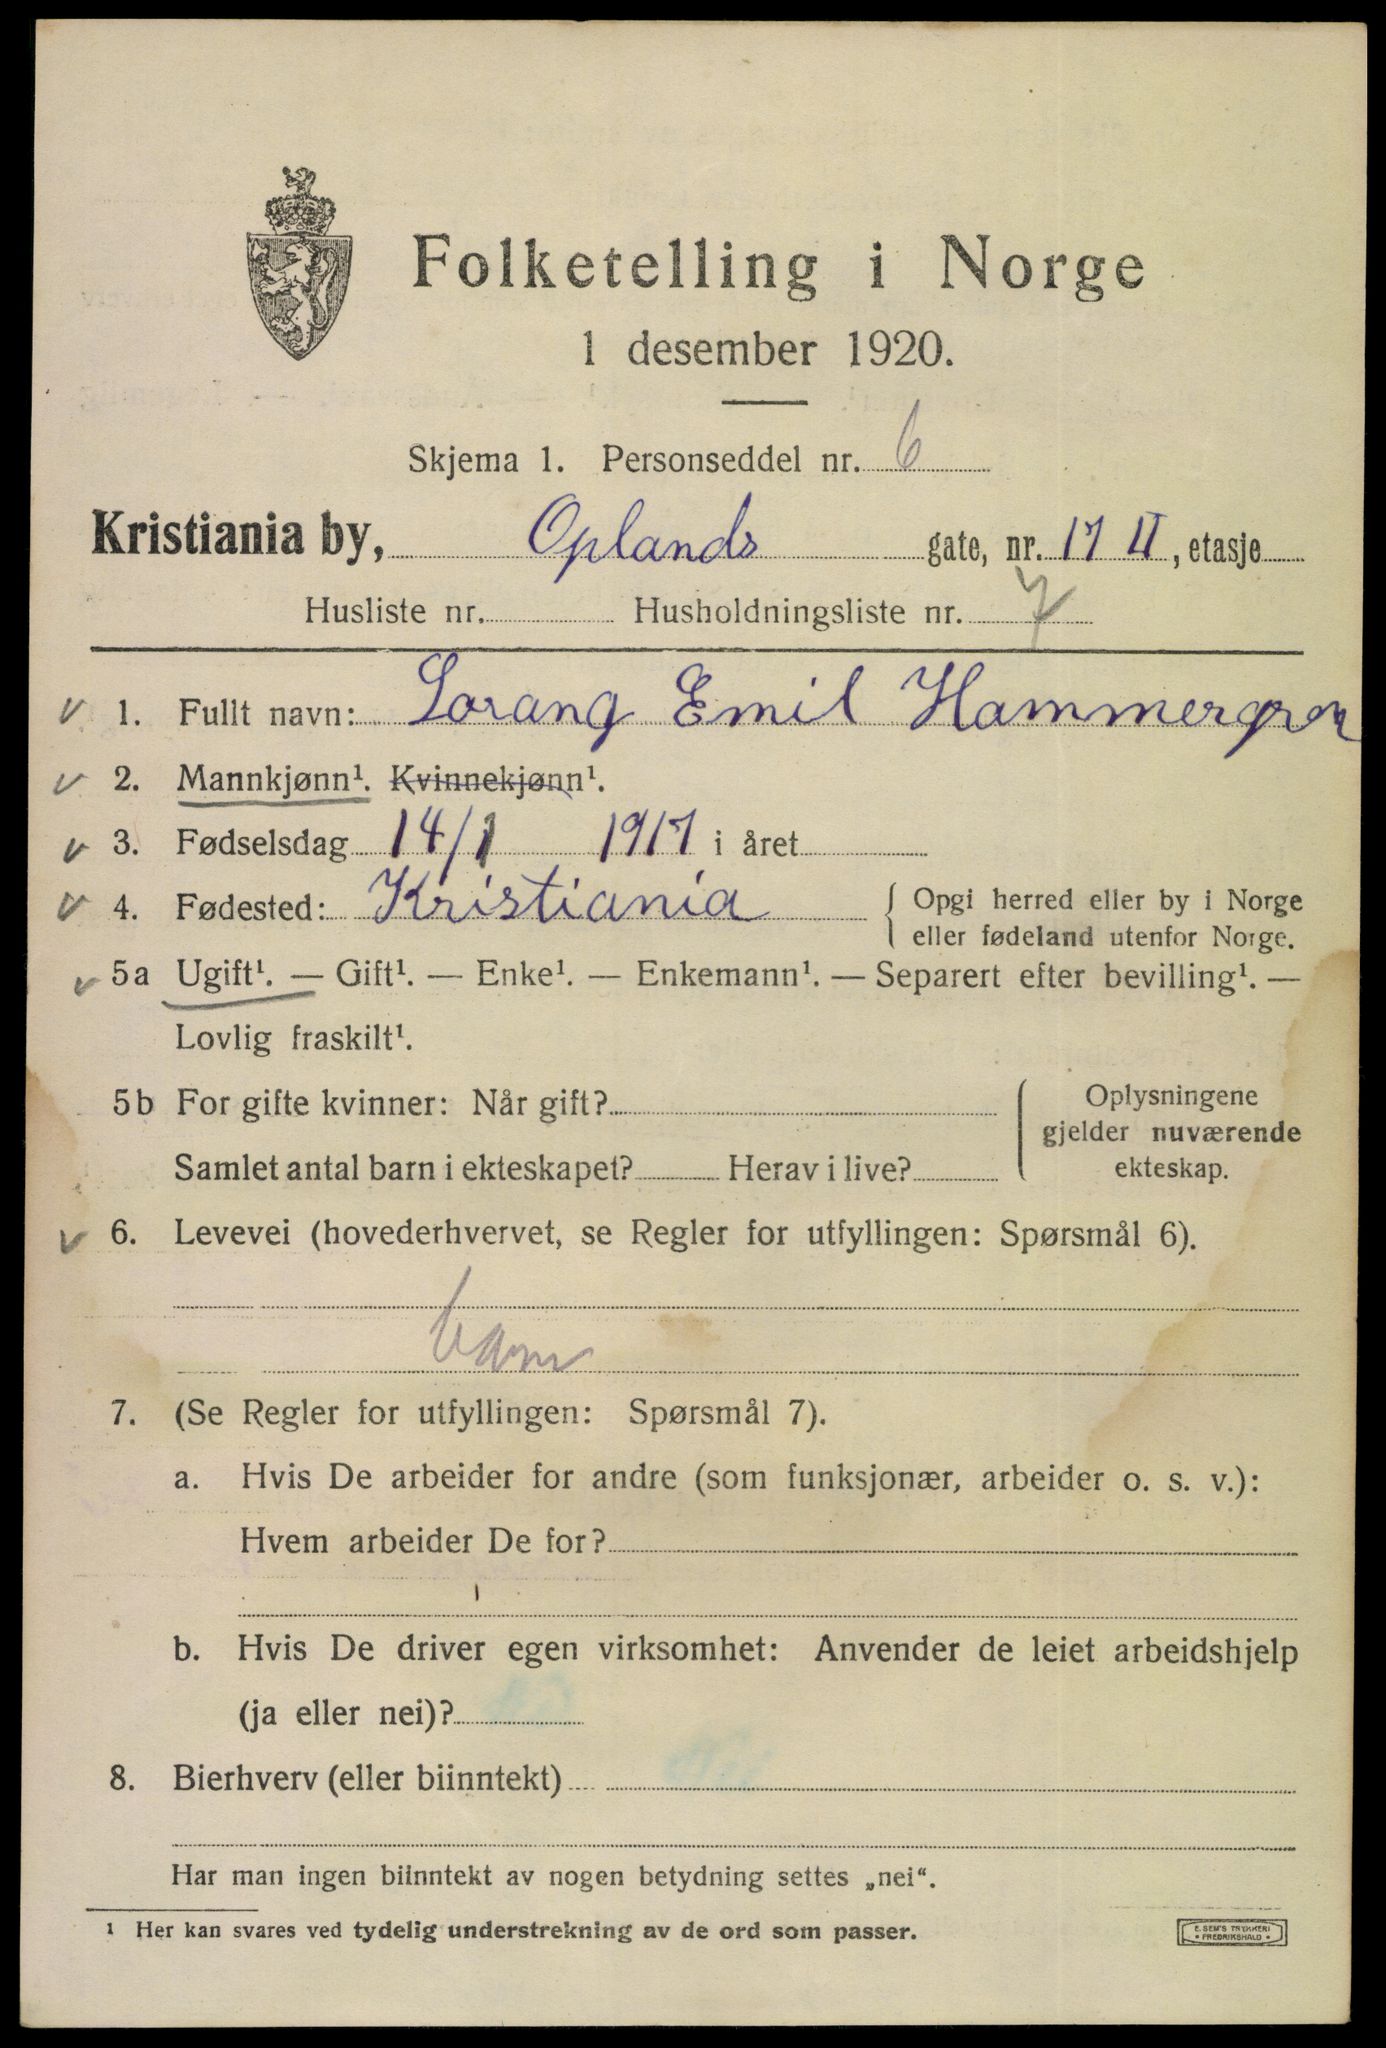 Folketelling i Norge
1 desember 1920.
Skjema 1. Personseddel nr. 6
Kristiania by, Oplands gate, nr. 17 II, etasje
Husliste nr. Husholdningsliste nr. 7
v 1. Fullt navn: Lorang Emil Hammergren
v 2. Mannkjønn¹. Kvinnekjønn¹.
v 3. Fødselsdag 14/1 1917 i året
v 4. Fødested: Kristiania { Opgi herred eller by i Norge
eller fødeland utenfor Norge.
v 5a Ugift¹. — Gift¹. — Enke¹. — Enkemann¹. — Separert efter bevilling¹. —
Lovlig fraskilt¹.
5b For gifte kvinner: Når gift? { Oplysningene
gjelder nuværende
Samlet antal barn i ekteskapet? Herav i live? ekteskap.
v 6. Levevei (hovederhvervet, se Regler for utfyllingen: Spørsmål 6).
barn
7. (Se Regler for utfyllingen: Spørsmål 7).
a. Hvis De arbeider for andre (som funksjonær, arbeider o. s. v.):
Hvem arbeider De for?
b. Hvis De driver egen virksomhet: Anvender de leiet arbeidshjelp
(ja eller nei)?
8. Bierhverv (eller biinntekt)
Har man ingen biinntekt av nogen betydning settes „nei“.
¹ Her kan svares ved tydelig understrekning av de ord som passer.
E. SEM'S TRYKKERI
• FREDRIKSHALD •